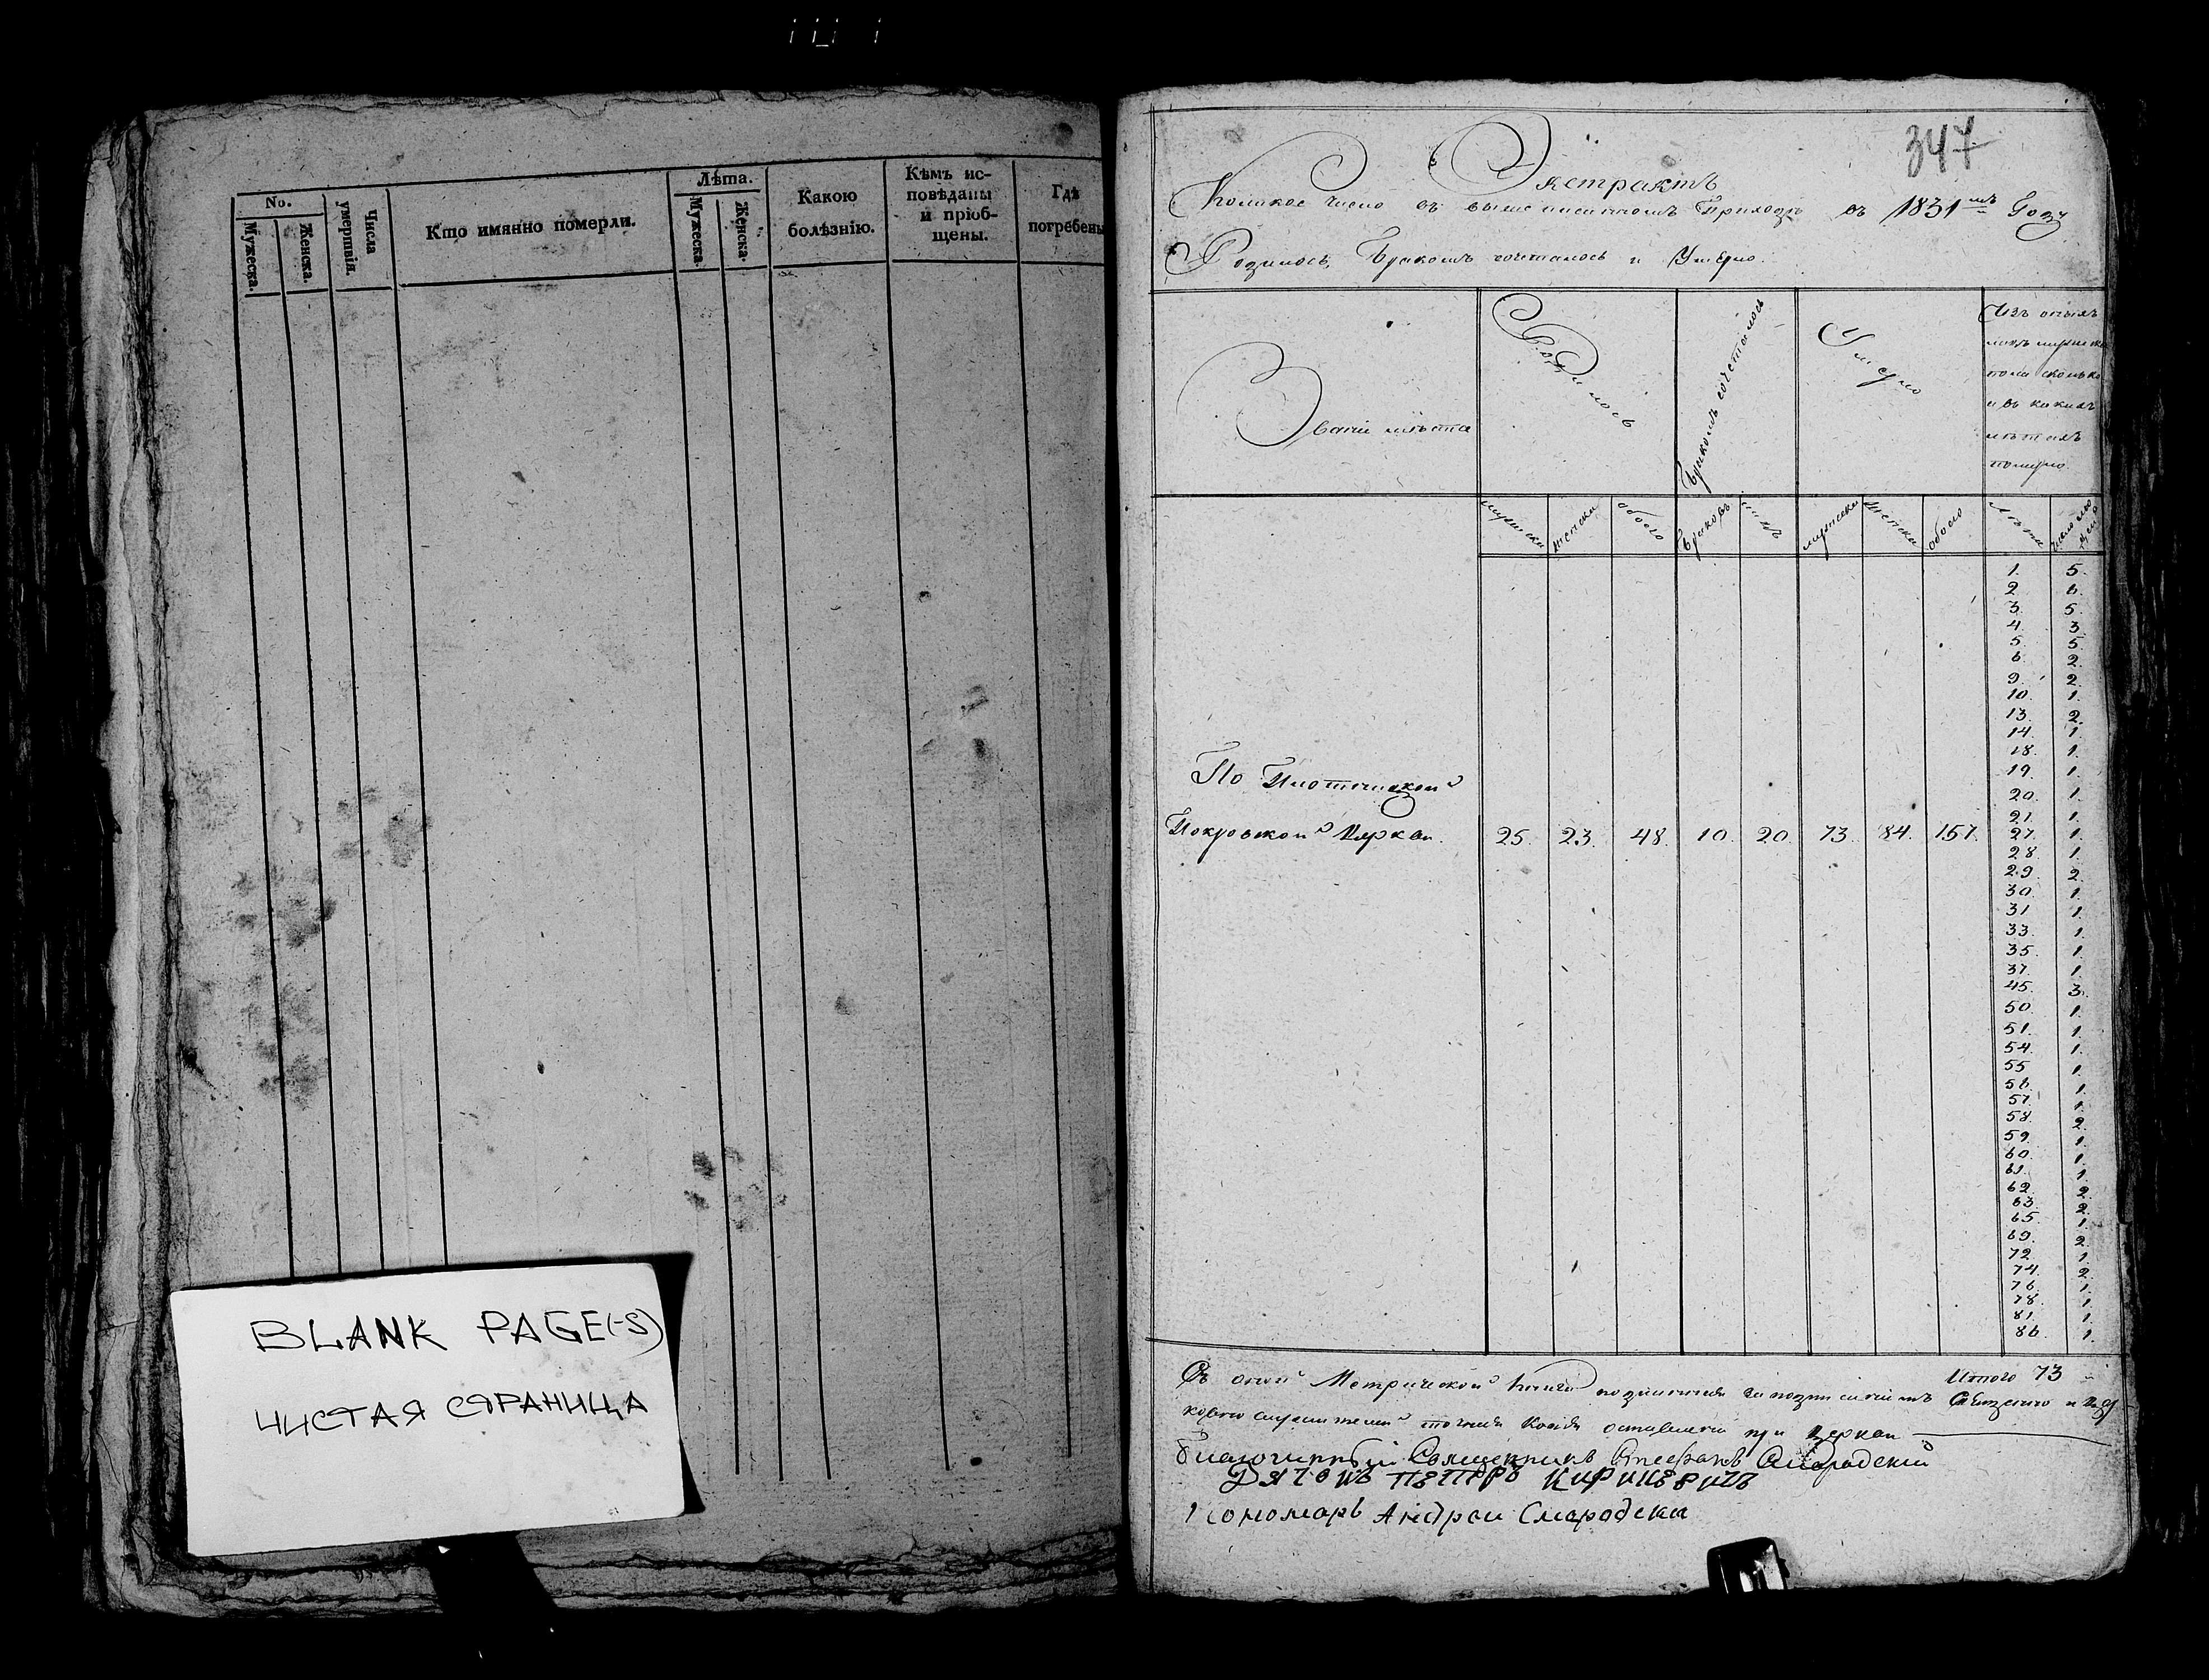 No.
Мужеска.
Женска.
Числа умертвія.
Кто имянно померли.
Лѣта.
Мужеска.
Женска.
Какою
болѣзнію.
Кѣмъ ис-
повѣданы
и пріоб-
щены.
Гдѣ
погребены
BLANK PAGE(-S)
ЧИСТАЯ СТРАНИЦА
347
Экстрактъ
Коликое число въ выше писанномъ Приходѣ въ 1831мъ Году
Родилось, Бракомъ сочеталось и Умерло.
Званіе мѣста
Родилось
Бракомъ сочеталось
Умерло
Изъ оныхъ
полу мужеска
пола сколько
и въ какихъ
лѣтахъ
померло
мужеска
женска
обоего
браковъ
мужеска
женска
обоего
Лѣта
1. 5.
2 6.
3. 5.
4. 3.
5. 5.
6. 2.
9. 2.
10. 1.
13. 2.
14. 1.
18. 1.
19. 1.
20. 1.
21. 1.
По
Покровской Церкви. 25. 23. 48. 10. 20. 73. 84. 157. 27. 1.
28. 1.
29. 2.
30. 1.
31 1.
33. 1.
35. 1.
37. 1.
45. 3.
50. 1.
51. 1.
54. 1.
55 1.
56. 1.
57. 1.
58. 2.
59. 1.
60. 1.
61. 1.
62. 2.
63. 2.
65. 1.
69. 2.
72. 1.
74. 2.
76. 1.
78. 1.
81. 1.
86. 1.
Итого 73
Съ оной Метрической книги
точная Копія оставлена при церкви
Благочинный Священникъ Стефанъ
Дячокъ Петръ Кириневичъ
Пономарь Андреи Смародски